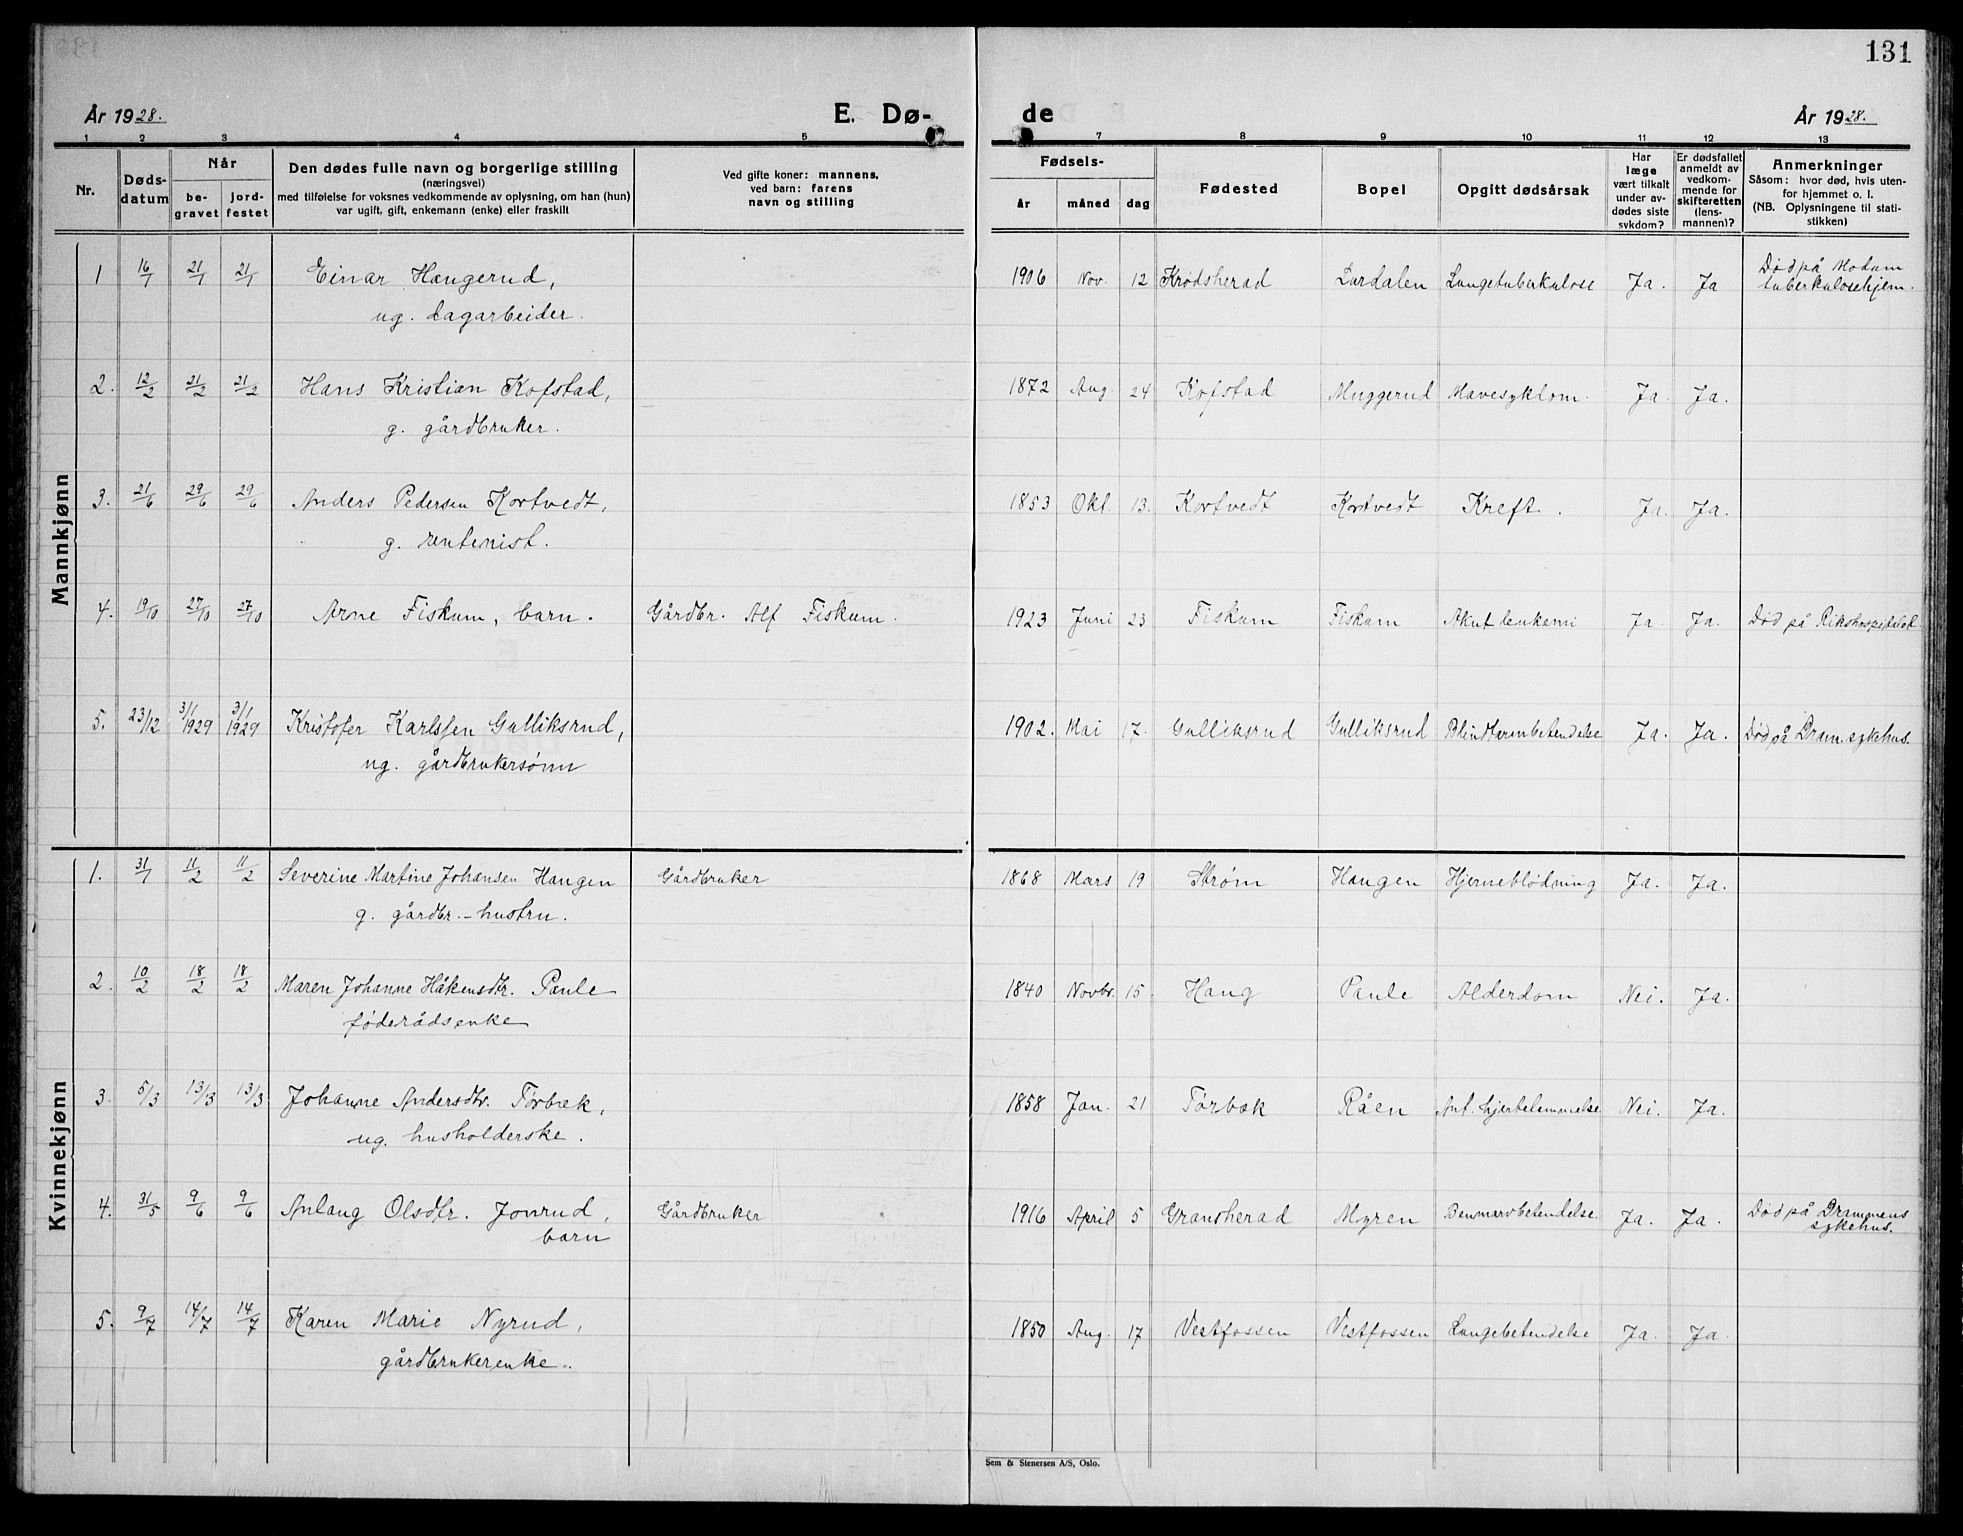 131
År 1928.
E. Dø-
de
År 1928.
1 2 3 4 5 7 8 9 10 11 12 13
Nr.
Døds-
datum
Når
be-
gravet
jord-
festet
Den dødes fulle navn og borgerlige stilling
(næringsvei)
med tilføielse for voksnes vedkommende av oplysning, om han (hun)
var ugift, gift, enkemann (enke) eller fraskilt
Ved gifte koner: mannens,
ved barn: farens
navn og stilling
Fødsels-
år
måned
dag
Fødested
Bopel
Opgitt dødsårsak
Har
læge
vært tilkalt
under av-
dødes siste
sykdom?
Er dødsfallet
anmeldt av
vedkom-
mende for
skifteretten
(lens-
mannen)?
Anmerkninger
Såsom: hvor død, hvis uten-
for hjemmet o. l.
(NB. Oplysningene til stati-
stikken)
Mannkjønn
1 16/1 21/1 21/1 Einar Haugerud, 1906 Nov. 12 Krødsherad Lurdalen Lungetuberkulose Ja. Ja Død på Modum
ug. dagarbeider. tuberkulosehjem.
2. 12/2 21/2 21/2 Hans Kristian Kofstad, 1872 Aug. 24 Kofstad Muggerud Mavesykdom. Ja. Ja.
g. gårdbruker.
3. 21/6 29/6 29/6 Anders Pedersen Kortvedt, 1853 Okt. 13. Kortvedt Kortvedt Kreft. Ja. Ja.
g. rentenist.
4. 19/10 27/10 27/10 Arne Fiskum, barn. Gårdbr. Alf Fiskum. 1923 Juni 23 Fiskum Fiskum Akut leukemi Ja. Ja. Død på Rikshospitalet
5. 23/12 3/1 1929 3/1 1929 Kristofer Karlssen Gulliksrud, 1902. Mai 17. Gulliksrud Gulliksrud Blindtarmbetendelse Ja. Ja. Død på Dram. sykehus.
ug. gårdbrukersønn
Kvinnekjønn
1. 31/1 11/2 11/2 Severine Martine Johansen Haugen Gårdbruker 1868 Mars 19 Strøm Haugen Hjerneblødning Ja. Ja.
g. gårdbr.-hustru.
2. 10/2 18/2 18/2 Maren Johanne Håkensdtr. Paule 1840 Novbr. 15. Haug Paule Alderdom Nei. Ja.
føderådsenke
3. 5/3 13/3 13/3 Johanne Andersdtr. Tørbæk, 1858 Jan. 21 Tørbæk Råen Ant. hjertelammelse Nei. Ja.
ug. husholderske.
4. 31/5 9/6 9/6 Aslaug Olsdtr. Jonrud, Gårdbruker 1916 April 5 Gransherad Myren Benmarvbetendelse. Ja. Ja. Død på Drammens
barn sykehus.
5. 9/7 14/7 14/7 Karen Marie Nyrud, 1850 Aug. 17 Vestfossen Vestfossen Lungebetendelse Ja. Ja.
gårdbrukerenke.
Sem & Stenersen A/S, Oslo.